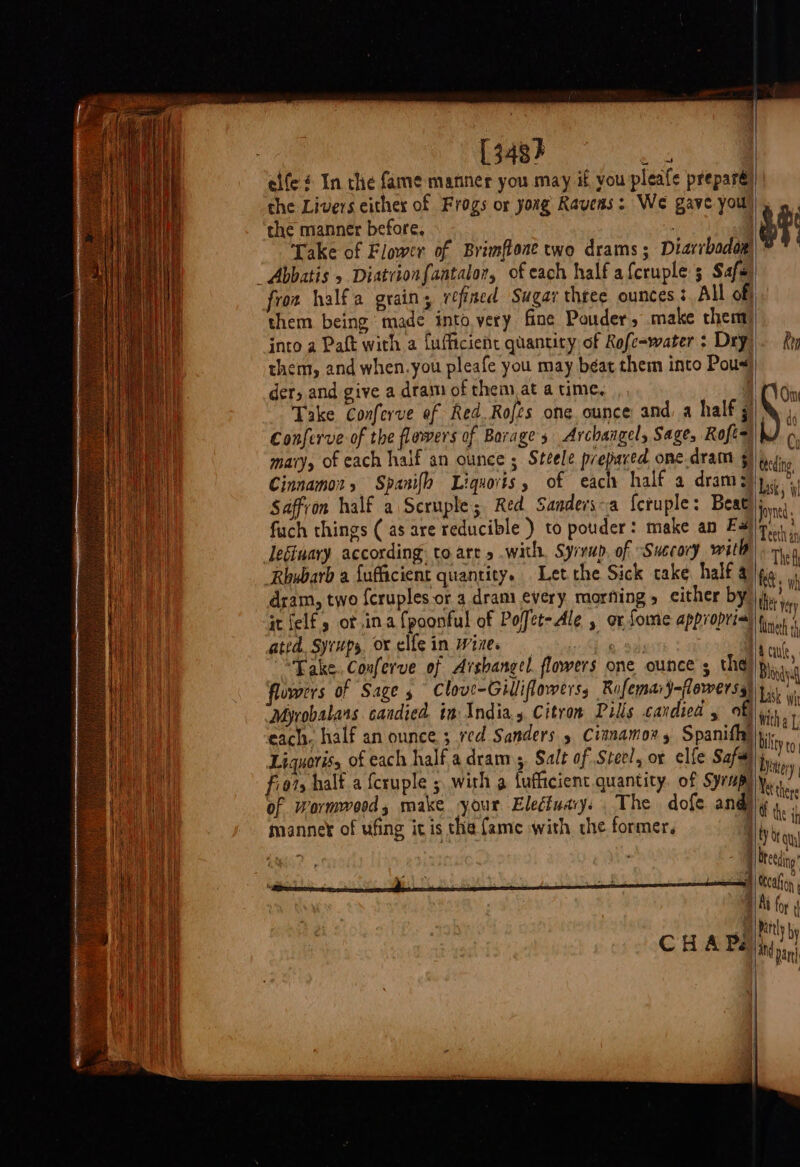 [348]
elſe: In the ſame manner you may if you pleaſe prepare
the Livers either of Frogs or yong Ravens: We gave you
the manner before.
Take of Flower of Brimſtone two drams; Diarrhodon
Abbatis, Diatrion ſantalon, of each half a ſcruple; Saf-
fron half a grain; refined Sugar three ounces: All of
them being made into very fine Pouder, make them
into a Paſt with a ſufficient quantity of Roſe-water: Dry
them, and when you pleaſe you may beat them into Pou-
der, and give a dram of them at a time.
Take Conſerve of Red Roſes one ounce and a half;
Conſerve of the flowers of Borage, Archangel, Sage, Roſe-
mary, of each half an ounce; Steele prepared one dram;
Cinnamon, Spaniſh Liquoris, of each half a dram;
Saffron half a Scruple; Red Sanders a ſcruple: Beat
ſuch things (as are reducible) to pouder: make an E-
lectuary according to art, with Syrrup of Succory with
Rhubarb a ſufficient quantity. Let the Sick take half a
dram, two ſcruples or a dram every morning, either by
it ſelf, or in a ſpoonful of Poſſet-Ale, or ſome appropri-
ated Syrups, or elſe in Wine.
Take Conſerve of Archangel flowers one ounce; the
flowers of Sage, Clove-Gilliflowers, Roſemary-flowers,
Myrobalans candied in India, Citron Pills candied, of
each half an ounce; red Sanders, Cinnamon, Spaniſh
Liquoris, of each half a dram; Salt of Steel, or elſe Saf-
fron, half a ſcruple; with a ſufficient quantity of Syrup
of Wormwood, make your Electuary. The doſe and
manner of uſing it is the ſame with the former.
CHAP.